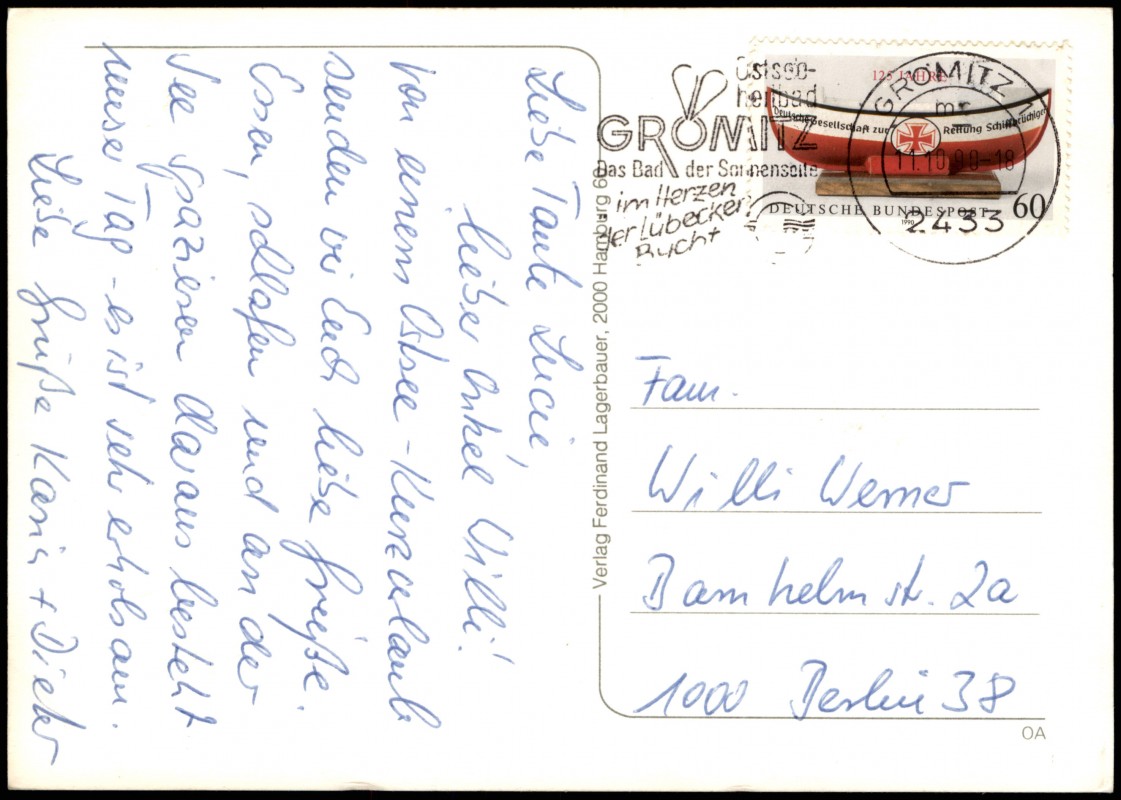 Liebe Tante Lucie,
lieber Onkel Willi!
Von einem Ostsee-Kurzurlaub
senden wir Euch liebe Grüße.
Essen, schlafen und an der
See spazieren daraus besteht
unser Tag - es ist sehr erholsam.
Liebe Grüße Karin + Dieter
Verlag Ferdinand Lagerbauer, 2000 Hamburg 60
Ostsee-
heilbad
GRÖMITZ
Das Bad der Sonnenseite
im Herzen
der Lübecker
Bucht
125 JAHRE
Deutsche Gesellschaft zur Rettung Schiffbrüchiger
DEUTSCHE BUNDESPOST 60
1990
GRÖMITZ 1
mr
11.10.90-18
2433
Fam.
Willi Werner
Barnhelmstr. 2a
1000 Berlin 38
OA